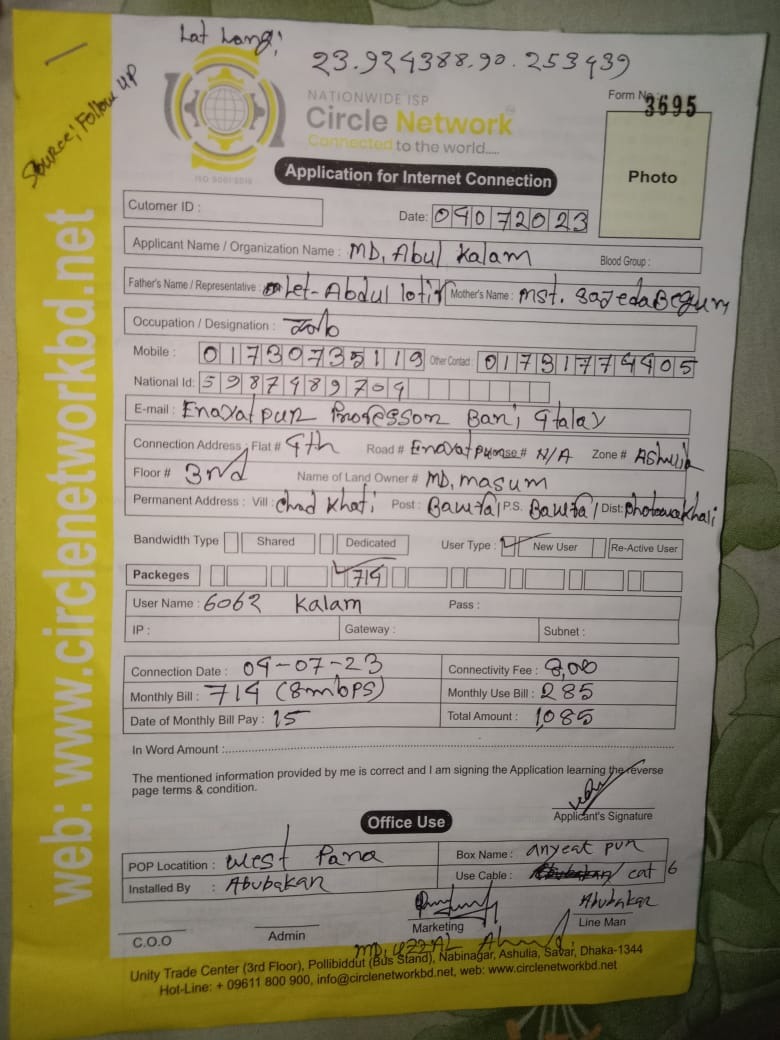 Lat Long;
23.924388.90.253439
Source; Follow UP
NATIONWIDE ISP
Circle Network
Connected to the world.....
ISO 9001:2015
Form No. 3695
Application for Internet Connection
Photo
Cutomer ID :
Date: 04072023
Applicant Name / Organization Name : MD, Abul Kalam Blood Group :
Father's Name / Representative : Let-Abdul lotif Mother's Name : mst. Sajeda Begum
Occupation / Designation : Job
Mobile : 01730735119 Other Contact : 01731774405
National Id: 5987489704
E-mail : Enayatpur Professor Bari, 4talay
Connection Address, Flat # 4th Road # Enayatpur House# N/A Zone # Ashulia
Floor # 3rd Name of Land Owner # MD, masum
Permanent Address : Vill : Chad Khati Post : Baufal P.S. Baufal Dist: photouakhali
Bandwidth Type Shared Dedicated User Type : New User Re-Active User
Packeges 714
User Name : 6062 Kalam Pass :
IP : Gateway : Subnet :
Connection Date : 04-07-23 Connectivity Fee : 8,00
Monthly Bill : 714 (8mbps) Monthly Use Bill : 285
Date of Monthly Bill Pay : 15 Total Amount : 1,085
In Word Amount :
The mentioned information provided by me is correct and I am signing the Application learning the reverse
page terms & condition.
Applicant's Signature
Office Use
POP Locatition : West Para Box Name : anyeat pur
Installed By : Abubakar Use Cable : cat 6
Abubakar
C.O.O Admin Marketing Line Man
MD, UZZAL Ahmed
Unity Trade Center (3rd Floor), Pollibiddut (Bus Stand), Nabinagar, Ashulia, Savar, Dhaka-1344
Hot-Line: + 09611 800 900, info@circlenetworkbd.net, web: www.circlenetworkbd.net
web: www.circlenetworkbd.net